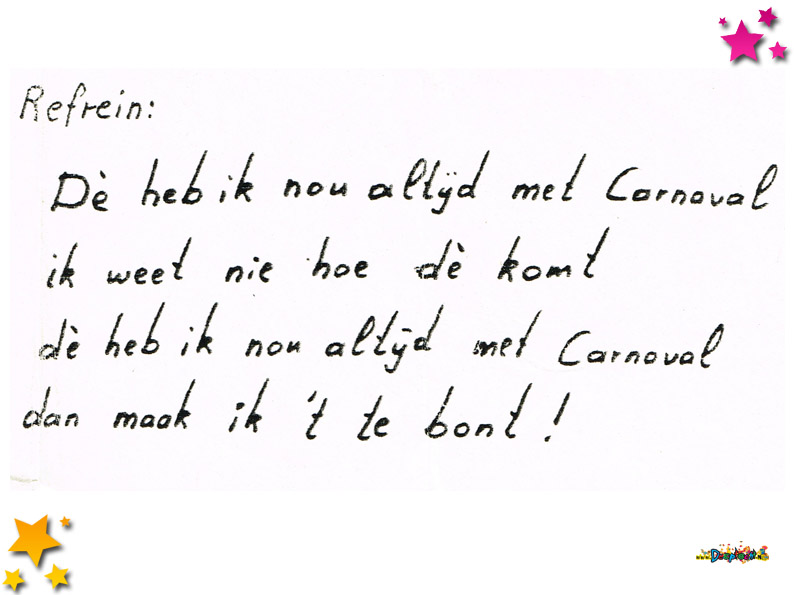 Refrein:
Dè heb ik nou altijd met Carnaval
ik weet nie hoe dè komt
dè heb ik nou altijd met Carnaval
dan maak ik 't te bont!